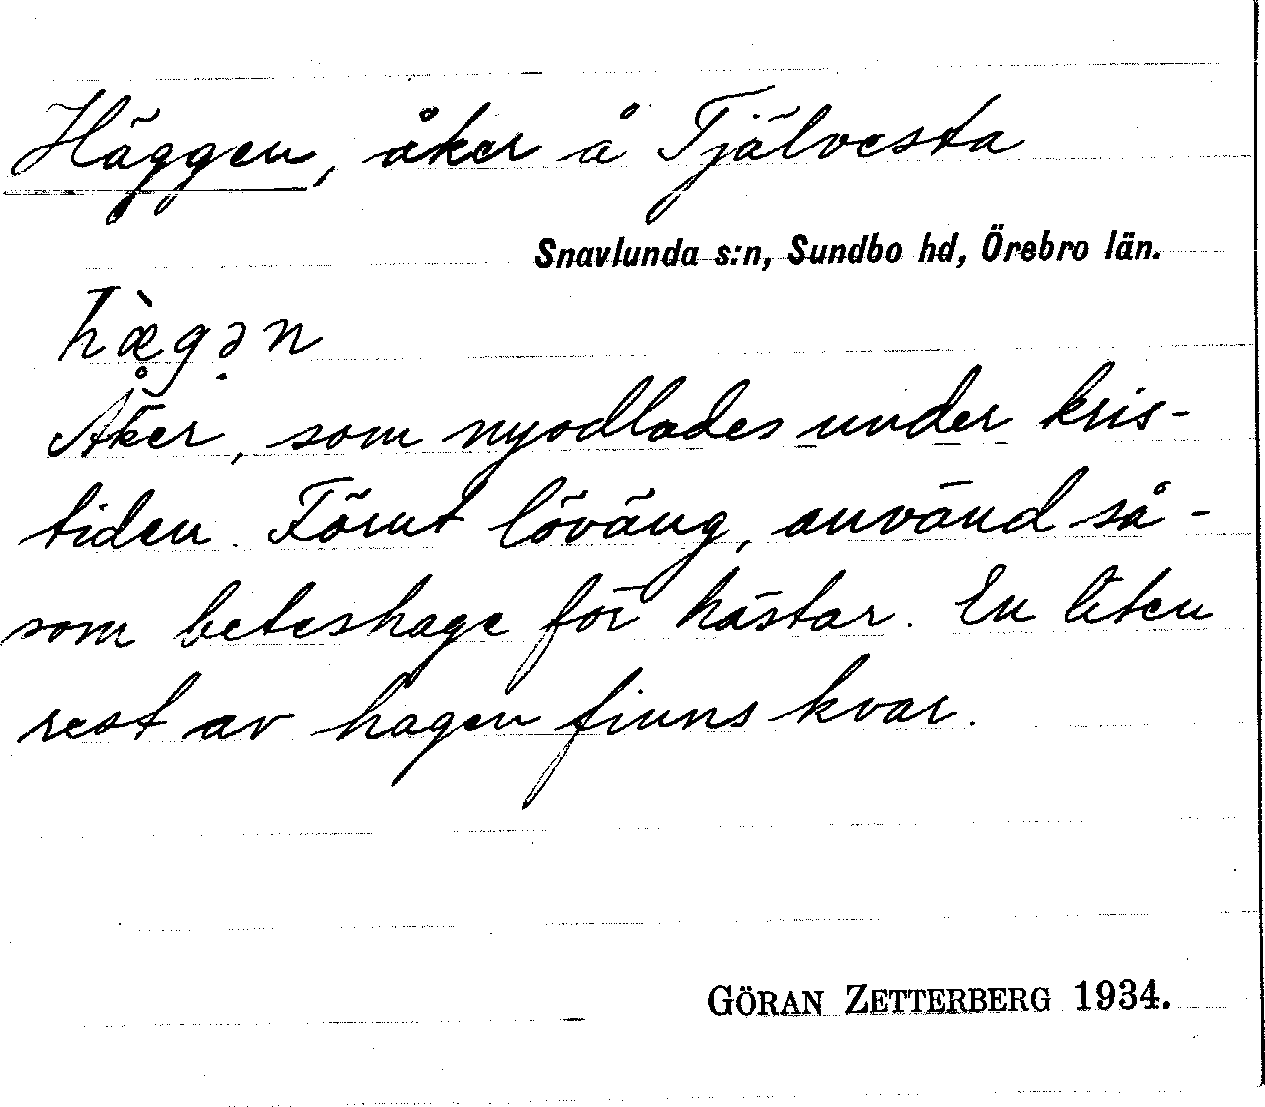 Häggen, åker å Tjälvesta
Snavlunda s:n, Sundbo hd, Örebro län.
hæ̀gən
Åker, som nyodlades under kris-
tiden. Förut löväng, använd så-
som beteshage för hästar. En liten
rest av hagen finns kvar.
GÖRAN ZETTERBERG 1934.